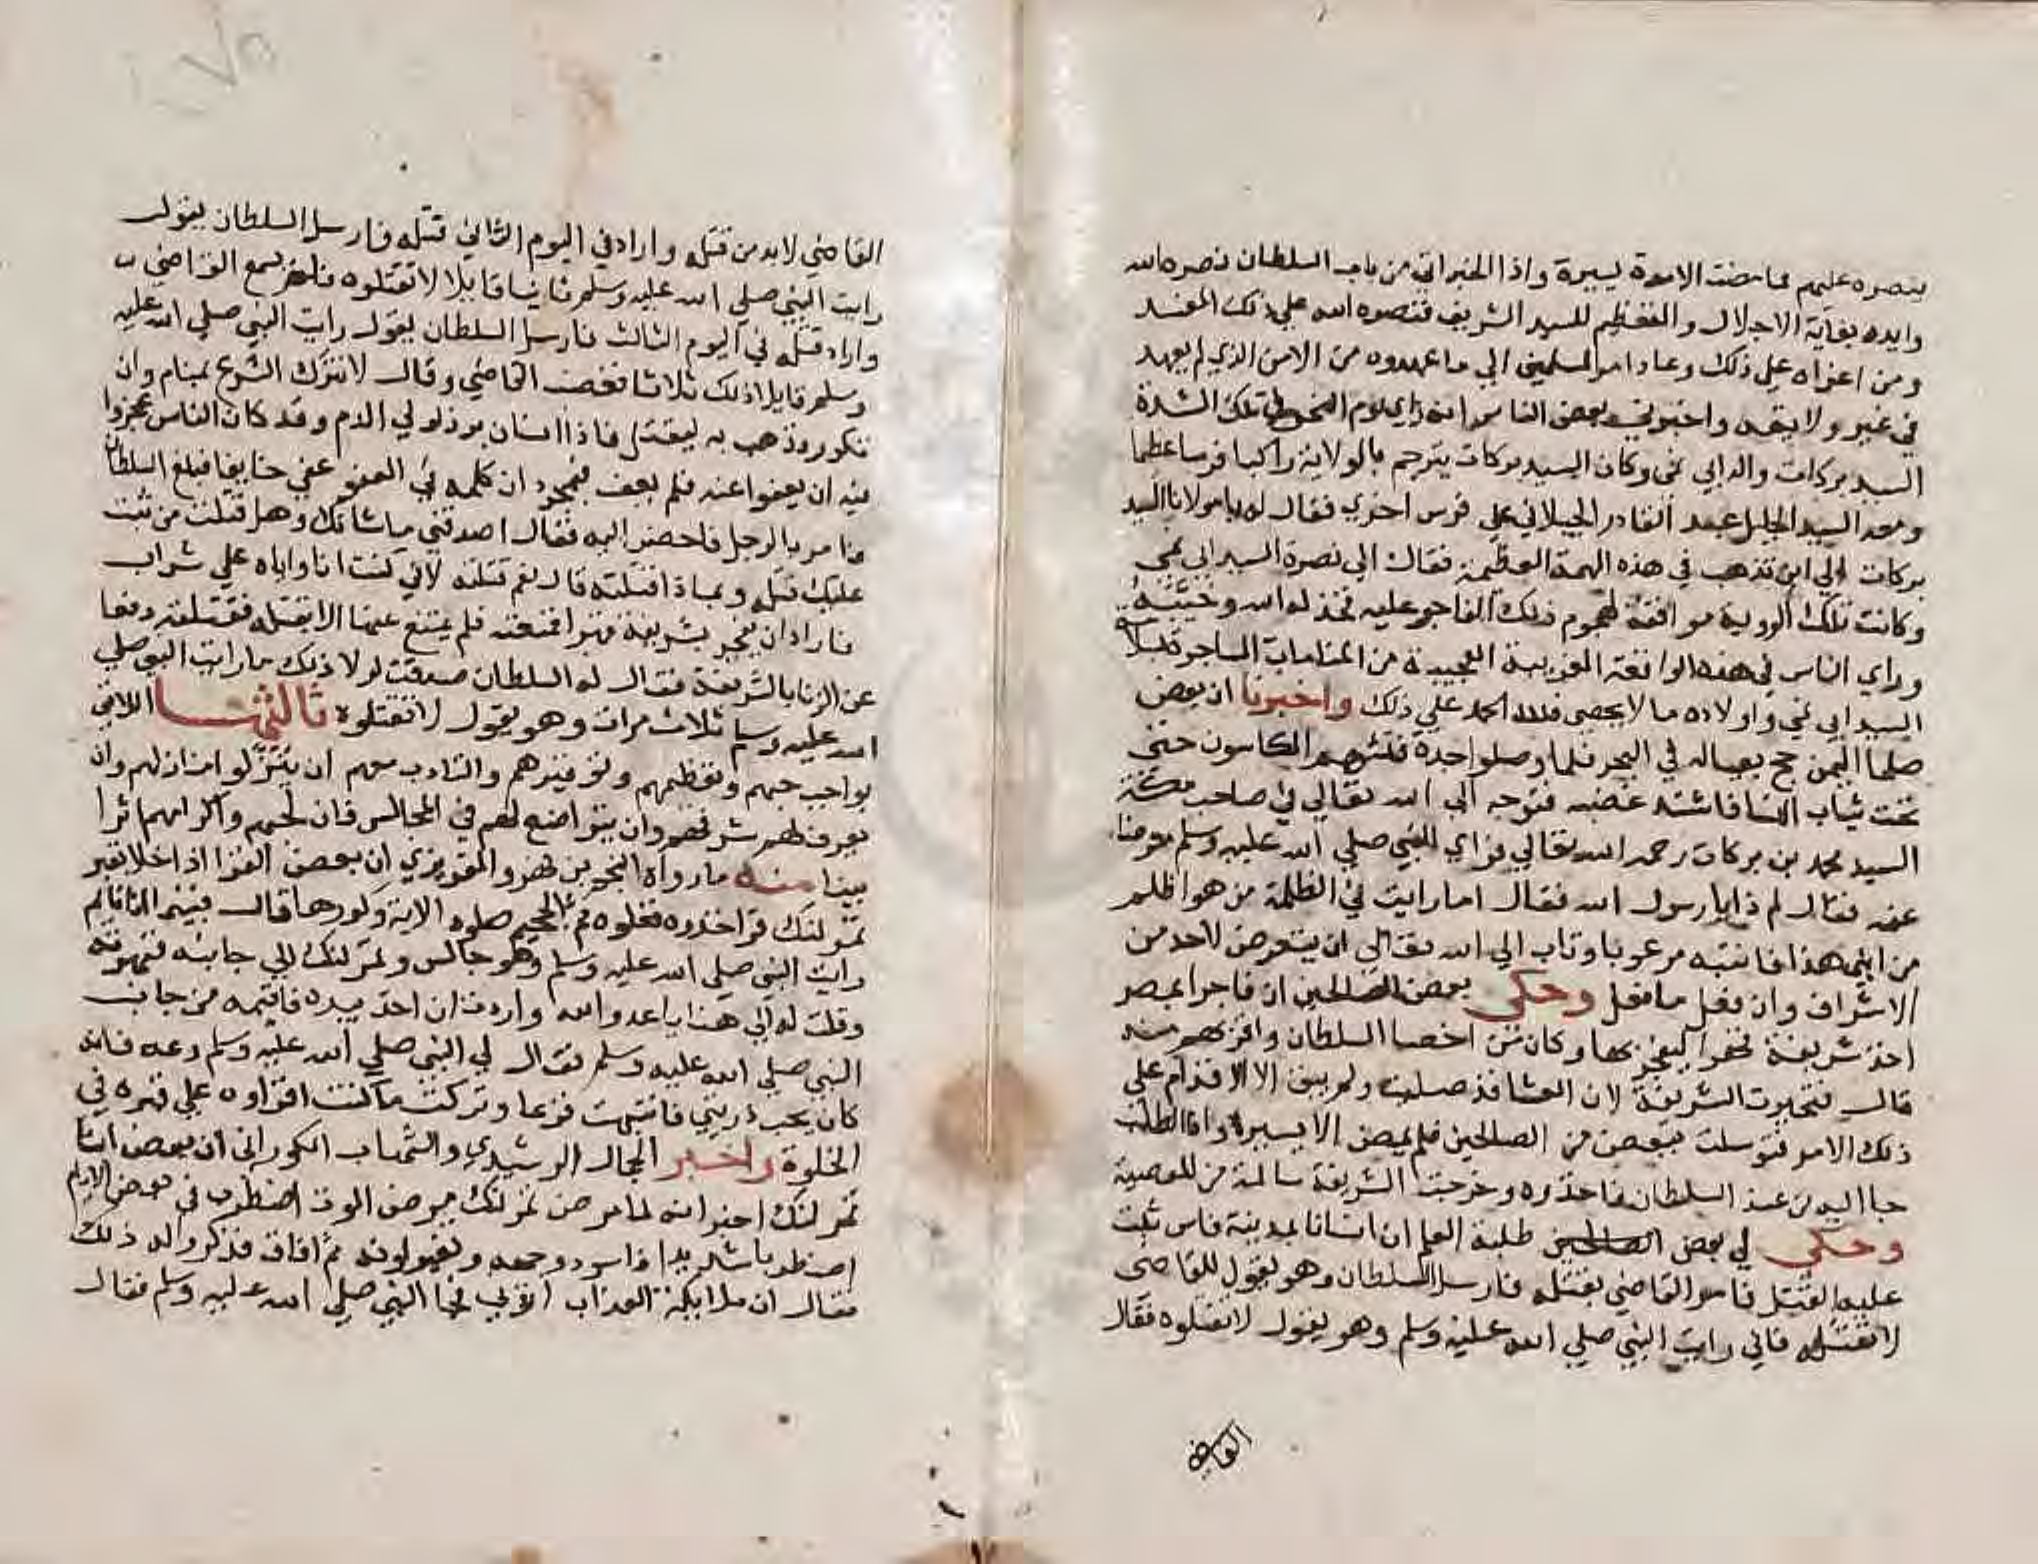 بنصره عليهم فما مضت الامدة يسيرة واذا الخبر اتى من باب السلطان نصره الله
وايده بغاية الاجلال والتعظيم للسيد الشريف فنصره الله على ذلك المفسد
ومن اعزاه على ذلك وعاد امر المسلمين الي ما عهدوه من الامن الذي لم يعهد
في غير ولا بقعه واخبرني بعض الناس انه راي يوم تلك الشدة
السيد بركات والد ابي نمى وكان السيد بركات يترجم بالولاية راكبا فرسا عظيما
ومعه السيد الجليل عبد القادر الجيلاني علي فرس اخري فقال له يا مولانا السيد
بركات الي اين تذهب في هذه الهمة العظيمة فقال الي نصرة السيد ابي نمي
وكانت تلك الروية موافقة لهجوم ذلك الفاجر عليه فخذله الله وخيبه
وراي الناس في هذه الواقعة الغريبة العجيبة من المنامات
السيد ابي نمي واولاده ما لا يحصى فلله الحمد علي ذلك واخبرنا ان بعض
صلحا اليمن حج بعياله في البحر فلما وصلو اجدة فتشهم المكاسون حتى
تحت ثياب النسا فاشتد غضبه فتوجه الي الله تعالي في صاحب مكة
السيد محمد بن بركات رحمه الله تعالي فراي النبي صلي الله عليه وسلم معرضا
عنه فقال لم ذا يا رسول الله فقال اما رايت في الظلمة من هو اظلم
من ابني هذا فانتبه مرعوبا وتاب الي الله تعالي ان يتعرض لاحد من
الاشراف وان فعل ما فعل وحكى بعض الصالحين ان فاجرا بمصر
اخذ شريفة قهرا ليفجر بها وكان من اخصا السلطان واقربهم منه
قال فتحيرت الشريفة لان العشا قد صليت ولم يبق الا الاقدام على
ذلك الامر فتوسلت ببعض من الصالحين فلم يمض الا يسيرة واذا الطلب
جا اليه من عند السلطان فاخذوه وخرجت الشريفة سالمة من المعصية
وحكى لي بعض طلبة العلم ان انسانا بمدينة فاس ثبت
عليه القتل فامر القاضي بقتله فارسل السلطان وهو يقول للقاضي
لا تقتله فاني رايت النبي صلي الله عليه وسلم وهو يقول لا تقتلوه فقال
القاضي
القاضي لابد من قتله واراد في اليوم الثاني قتله فارسل السلطان يقول
رايت النبي صلي الله عليه وسلم ثانيا قايلا لا تقتلوه فلم يسمع القاضي
واراد قتله في اليوم الثالث فارسل السلطان يقول رايت النبي صلي الله عليه
وسلم قايلا ذلك ثلاثا فغضب القاضي وقال لا نترك الشرع بمنام وان
تكرر وذهب به ليقتل فاذا انسان برز لولي الدم وقد كان الناس عجزوا
فيه ان يعفوا عنه فلم يعف فبمجرد ان كلمه في العفو عفي فبلغ السلطان
فامر بالرجل فاحضر اليه فقال اصدقني ما شانك وهل قتلت من ثبت
عليك قتله وبماذا قتلته قال نعم قتلته لاني كنت انا واياه علي شراب
فاراد ان يفجر بشريفة فمنعته فلم يمتنع عنها الا بقتله فقتلته دفعا
عن الزنا بالشريفة فقال له السلطان صدقت لولا ذلك ما رايت النبي صلي
الله عليه وسلم ثلاث مرات وهو يقول لا تقتلوه ثالثها اللايق
بواجب حبهم وتعظيمهم وتوقيرهم والتادب معهم ان ينزلو امنازلهم وان
يعرف لهم شرفهم وان يتواضع لهم في المجالس فان لحبهم واكرامهم اثرا
بينا منه ما رواه النجم بن فهد والمقريزي ان بعض القرا اذا خلا بقبر
تمرلنك قرا خذوه فغلوه ثم الجحيم صلوه الاية وكررها قال فبينما انا نايم
رايت النبي صلي الله عليه وسلم وهو جالس وتمرلنك الي جانبه فنهرته
وقلت له الي هنا يا عدو الله واردت ان اخذ بيده فاقيمه من جانب
النبي صلي الله عليه وسلم فقال لي النبي صلي الله عليه وسلم دعه فانه
كان يحب ذريتي فانتبهت فزعا وتركت ما كنت اقراوه علي قبره في
الخلوة واخبر الجمال المرشدي والشهاب الكوراني ان بعض ابنا
تمرلنك اخبر انه لما مرض تمرلنك مرض الموت اضطرب في بعض الايام
اضطرابا شديدا فاسود وجهه وتغير لونه ثم افاق فذكروا له ذلك
فقال ان ملايكة العذاب اتوني فجا النبي صلي الله عليه وسلم فقال